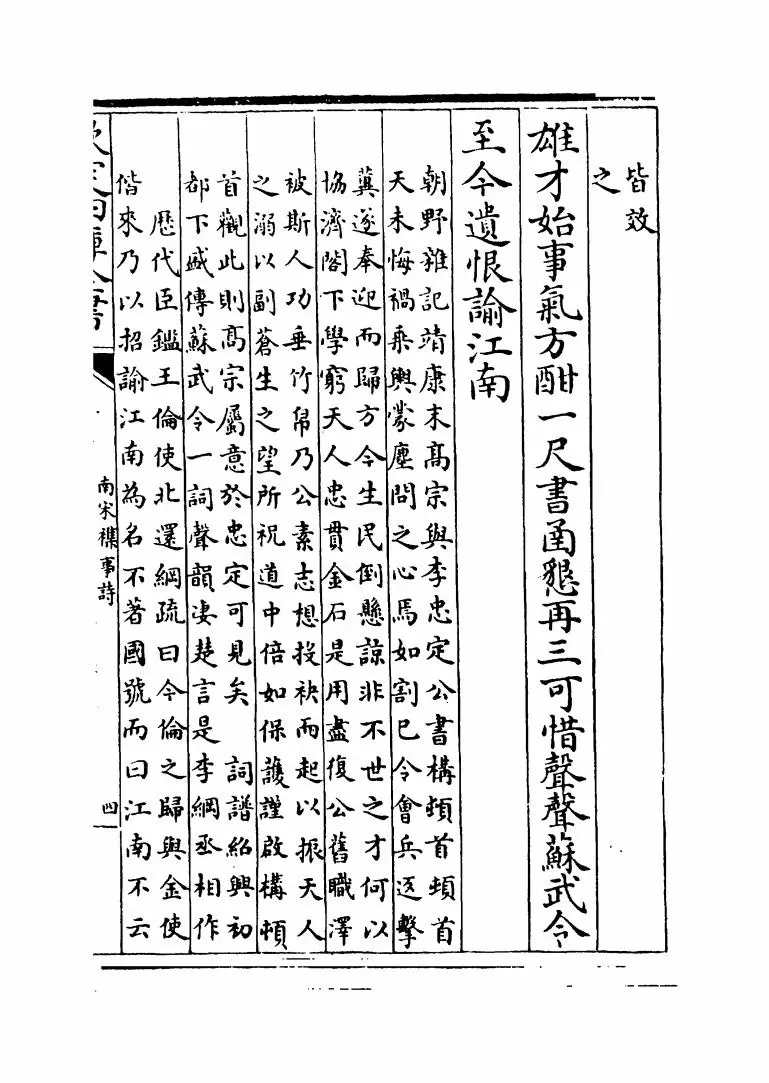 皆效
之
雄才始事氣方酣一尺書函懇再三可惜聲聲蘇武令
至今遺恨諭江南
朝野雜記靖康末髙宗與李忠定公書構頓首頓首
天未悔禍乘輿蒙塵問之心焉如割已令會兵追擊
冀遂奉迎而歸方今生民倒懸諒非不世之才何以
協濟閤下學窮天人忠貫金石是用盡復公舊職澤
被斯人功垂竹帛乃公素志想投袂而起以振天人
之溺以副蒼生之望所祝道中倍如保護謹啟構頓
首觀此則髙宗屬意於忠定可見矣 詞譜紹興初
都下盛傳蘇武令一詞聲韻凄楚言是李綱丞相作
歴代臣鑑王倫使北還綱疏曰今倫之歸與金使
偕來乃以招諭江南為名不著國號而曰江南不云
欽定四庫全書
南宋襍事詩
四